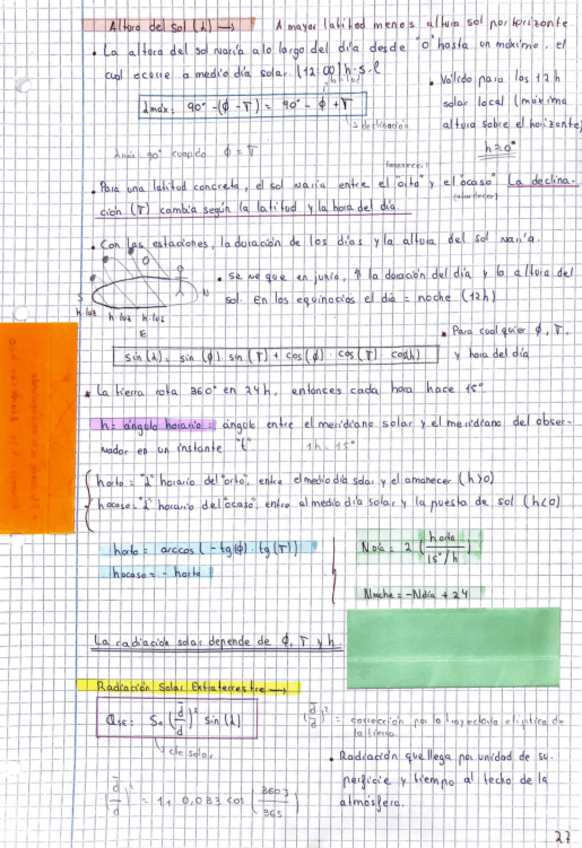 Altura del sol (λ) → A mayor latitud menos altura sol por horizonte
• La altura del sol varía a lo largo del día desde "0" hasta un máximo, el
cual ocurre a medio día solar. (12:00) h.s.l
λmáx: 90° -(φ - T) = 90° - φ + T
↳ declinación
• Válido para las 12h
solar local (máxima
altura sobre el horizonte)
h=0°
λmáx 90° cuando φ = T
(amanecer)
• Para una latitud concreta, el sol varía entre el "orto" y el "ocaso" La declina-
(atardecer)
ción (T) cambia según la latitud y la hora del día.
• Con las estaciones, la duración de los días y la altura del sol varía.
O
S
N
E
h.luz h.luz h.luz
• Se ve que en junio, ↑ la duración del día y la altura del
sol. En los equinocios el día = noche (12h)
sin(λ) = sin(φ) · sin(T) + cos(φ) · cos(T) · cos(h)
• Para cualquier φ, T,
y hora del día
• La tierra rota 360° en 24h, entonces cada hora hace 15°.
h = ángulo horario = ángulo entre el meridiano solar y el meridiano del obser-
vador en un instante "t". 1h = 15°
horto = "λ" horario del "orto", entre el medio día solar y el amanecer (h>0)
hocaso = "λ" horario del "ocaso", entre el medio día solar y la puesta de sol (h<0)
horto = arccos (-tg(φ) · tg(T))
hocaso = - horto
Ndía = 2 (horto / 15°/h)
Nnoche = -Ndía + 24
La radiación solar depende de φ, T y h.
Radiación Solar Extraterrestre →
Qse = So (d̄/d)² sin(λ)
↳ cte solar
(d̄/d)² = corrección por la trayectoria elíptica de
la tierra.
• Radiación que llega por unidad de su-
perficie y tiempo al techo de la
atmósfera.
(d̄/d)² = 1 + 0,033 cos (360J/365)
27